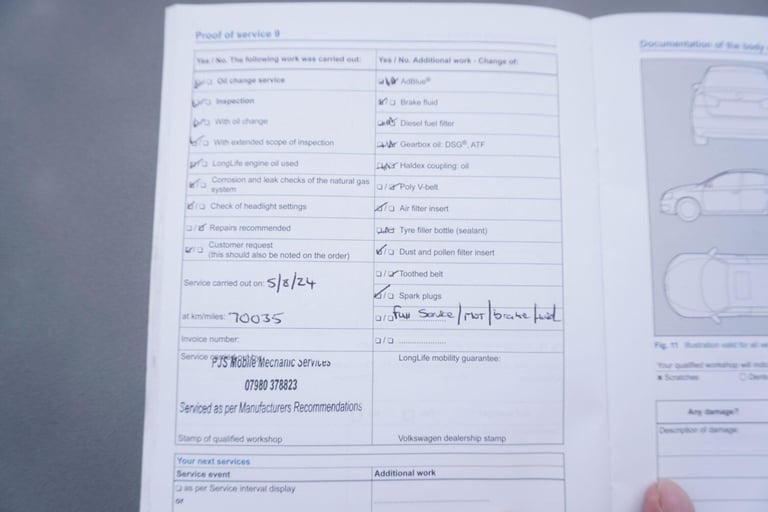 Proof of service 9
Yes / No. The following work was carried out:
Oil change service
Inspection
With oil change
With extended scope of inspection
LongLife engine oil used
Corrosion and leak checks of the natural gas
system
Check of headlight settings
Repairs recommended
Customer request
(this should also be noted on the order)
Service carried out on: 5/8/24
at km/miles: 70035
Invoice number:
Service
PJS Mobile Mechanic Services
07980 378823
Serviced as per Manufacturers Recommendations
Stamp of qualified workshop
Yes / No. Additional work - Change of:
AdBlue®
Brake fluid
Diesel fuel filter
Gearbox oil: DSG®, ATF
Haldex coupling: oil
Poly V-belt
Air filter insert
Tyre filler bottle (sealant)
Dust and pollen filter insert
Toothed belt
Spark plugs
Full Service/MOT/brake fluid
LongLife mobility guarantee:
Volkswagen dealership stamp
Your next services
Service event
Additional work
as per Service interval display
or
Documentation of the body
Fig. 11 Illustration valid for all
Your qualified workshop will
Scratches
Any damage?
Description of damage: